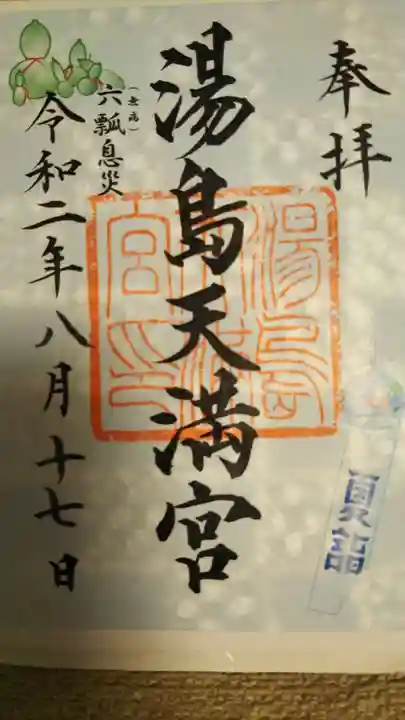 奉拝
湯島天満宮
湯島天満宮印
夏詣
(無病)
六瓢息災
令和二年八月十七日